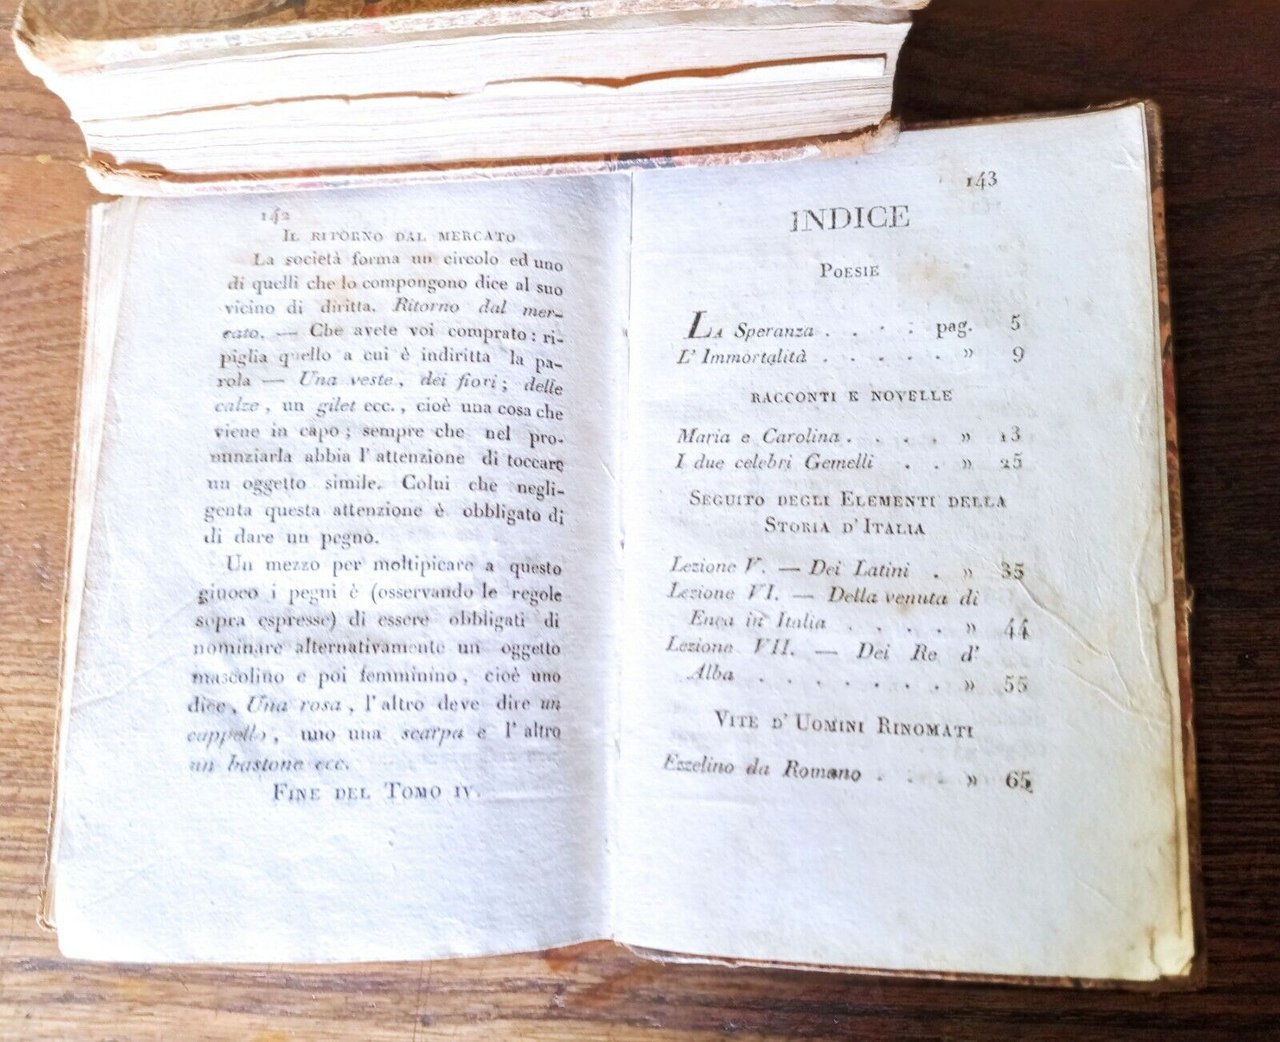 142
IL RITORNO DAL MERCATO
La società forma un circolo ed uno
di quelli che lo compongono dice al suo
vicino di diritta. Ritorno dal mer-
cato. — Che avete voi comprato: ri-
piglia quello a cui è indiritta la pa-
rola — Una veste, dei fiori; delle
calze, un gilet ecc., cioè una cosa che
viene in capo; sempre che nel pro-
nunziarla abbia l'attenzione di toccare
un oggetto simile. Colui che negli-
genta questa attenzione è obbligato di
di dare un pegno.
Un mezzo per moltipicare a questo
giuoco i pegni è (osservando le regole
sopra espresse) di essere obbligati di
nominare alternativamente un oggetto
mascolino e poi femminino, cioè uno
dice, Una rosa, l'altro deve dire un
cappello, uno una scarpa e l'altro
un bastone ecc.
FINE DEL TOMO IV.
143
INDICE
POESIE
LA Speranza . . . . pag. 5
L' Immortalità . . . . . » 9
RACCONTI E NOVELLE
Maria e Carolina . . . . » 13
I due celebri Gemelli . . » 25
SEGUITO DEGLI ELEMENTI DELLA
STORIA D'ITALIA
Lezione V. — Dei Latini . » 35
Lezione VI. — Della venuta di
Enea in Italia . . . . » 44
Lezione VII. — Dei Re d'
Alba . . . . . . . » 55
VITE D'UOMINI RINOMATI
Ezzelino da Romano . . . » 65